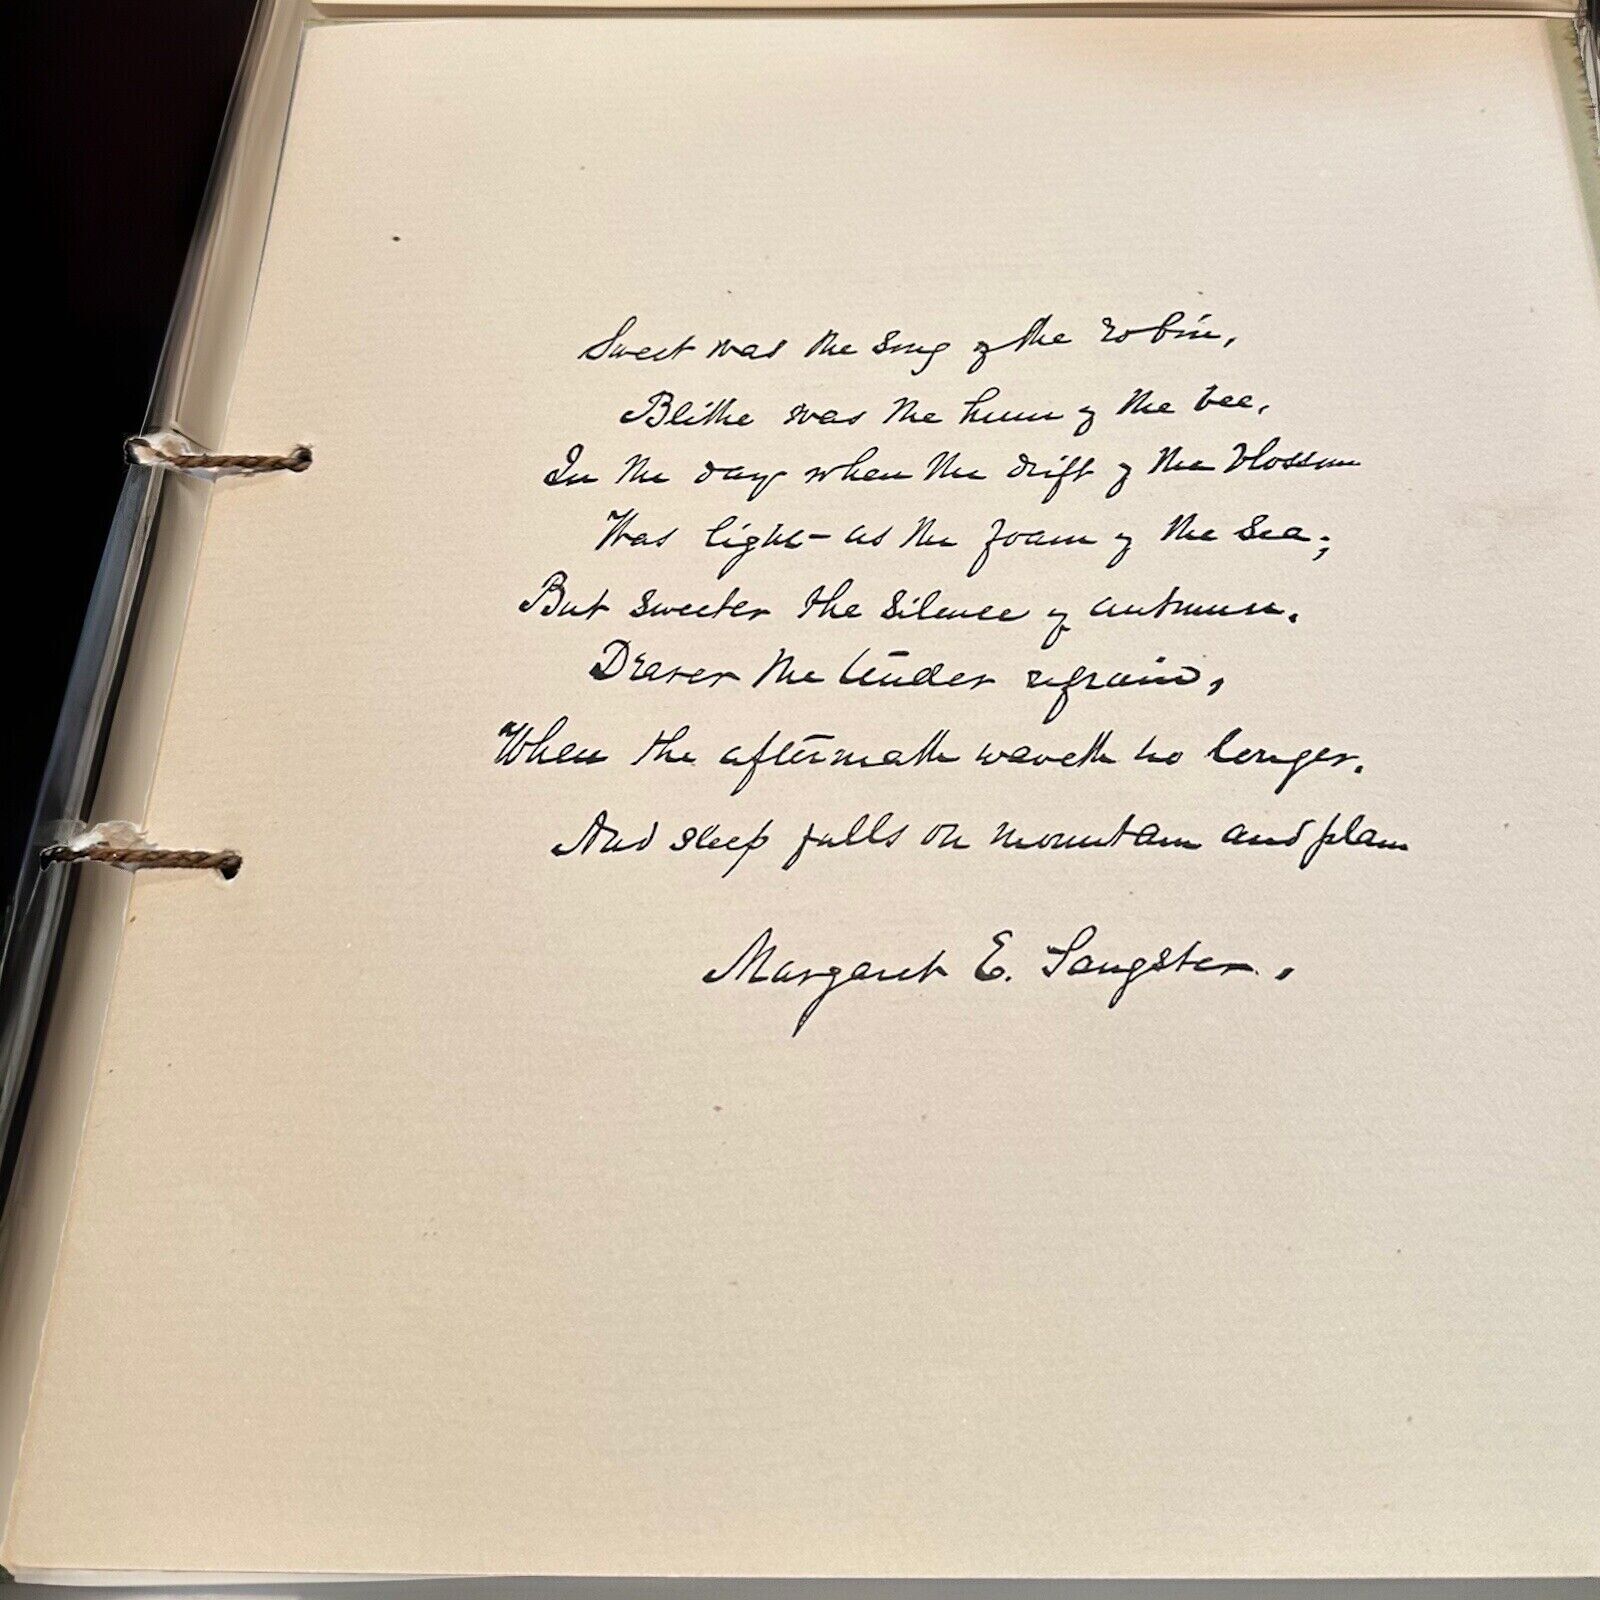 Sweet was the song of the robin,
Blithe was the hum of the bee,
In the days when the drift of the blossom
Was light as the foam of the sea;
But sweeter the silence of autumn,
Dearer the tender refrain,
When the aftermath waveth no longer,
And sleep falls on mountain and plain
Margaret E. Sangster.